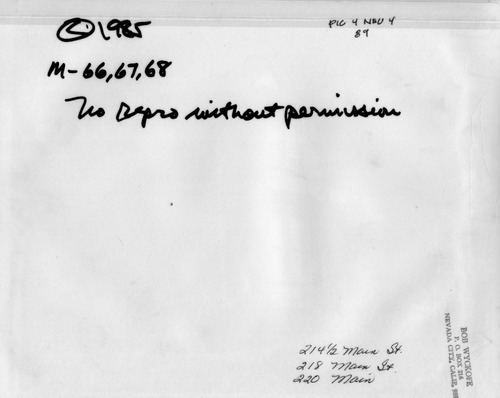 © 1985
PIC 4 NOV 4
89
M-66,67,68
No Repro without permission
214½ Main St.
218 Main St.
220 Main
BOB WYCKOFF
P. O. BOX 216
NEVADA CITY, CALIF.